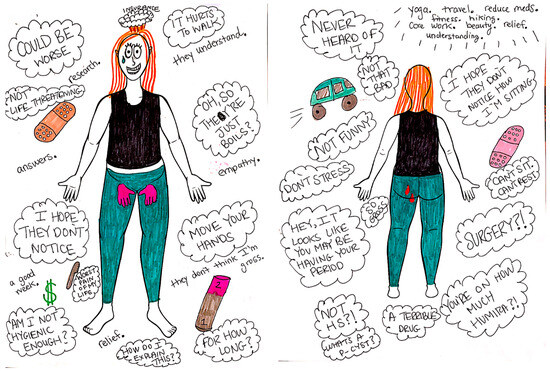 IGNORANCE
COULD BE
WORSE
IT HURTS
TO WALK
they understand.
research.
NOT
LIFE THREATENING
OH, SO
THEY'RE
JUST
BOILS?
answers.
empathy.
I HOPE
THEY DON'T
NOTICE
MOVE YOUR
HANDS
a good
week.
WORST
PAIN
OF MY
LIFE
they don't think I'm
gross.
$
2
1
AM I NOT
HYGIENIC
ENOUGH?
relief.
HOW DO I
EXPLAIN
THIS??
FOR HOW
LONG?
NEVER
HEARD OF
IT
yoga. travel. reduce meds.
fitness. hiking.
core work. beauty. relief.
understanding.
NOT
THAT
BAD
I HOPE
THEY DON'T
NOTICE HOW
I'M SITTING
NOT FUNNY?
DON'T STRESS
CAN'T SIT,
CAN'T REST
SO
GROSS
HEY, IT
LOOKS LIKE
YOU MAY BE
HAVING YOUR
PERIOD
SURGERY?!
NOT
HS?!
WHAT'S A
P-CYST?
A TERRIBLE
DRUG
YOU'RE ON HOW
MUCH
HUMIRA?!